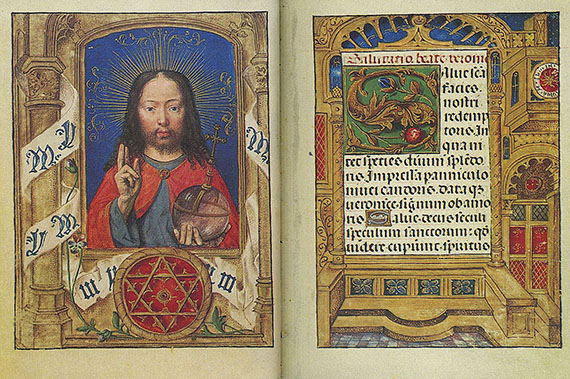 Salutatio beate veronice
Salue sca
facies
nostri
redemp
toris. In
qua ni
tet species diuini splēdo
ris. Impressa panniculo
niuei candoris. data qz
ueronice signum ob amo
Salue decus seculi
speculum sanctorum: qđ
uidere cupiunt spiritus